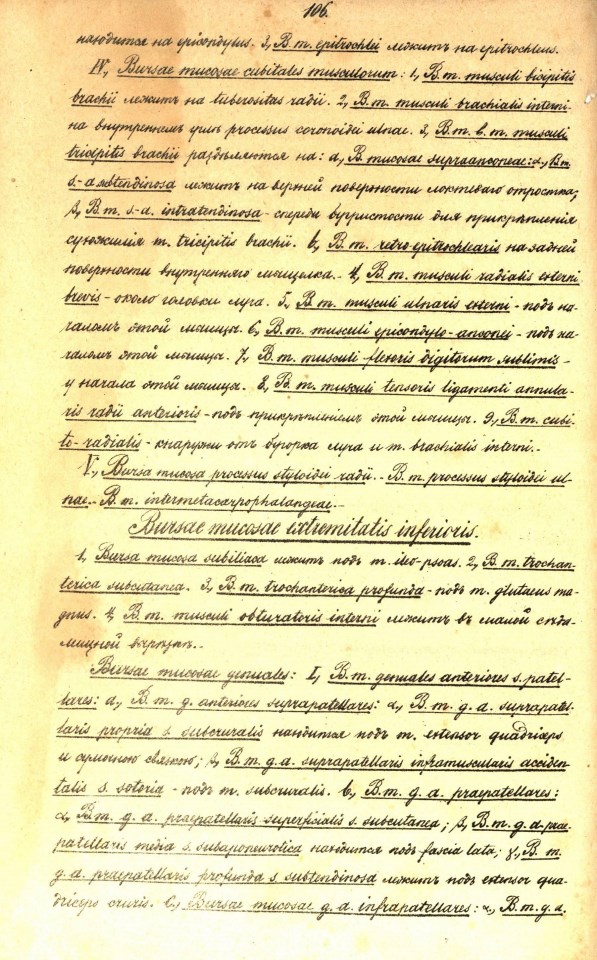 106.
находится на epicondylus. 3, B. m. epitrochlei лежитъ на epitrochleus.
IV, Bursae mucosae cubitales musculorum: 1, B. m. musculi bicipitis
brachii лежитъ на tuberositas radii. 2, B. m. musculi brachialis interni-
на внутреннемъ processus coronoidei ulnae. 3, B. m. b. m. musculi
tricipitis brachii раздѣляются на: a, B. mucosae supraanconeae: α, B. m.
s.-a subtendinosa лежитъ на верхней поверхности локтеваго отростка;
β, B. m. s.-a. intratendinosa - спереди бугристости для прикрѣпленія
сухожилія m. tricipitis brachii. b, B. m. retro-epitrochlearis на задней
поверхности внутренняго мыщелка. - 4, B. m. musculi radialis externi
brevis - около головки луча. 5, B. m. musculi ulnaris externi - подъ на-
чаломъ этой мышцы. 6, B. m. musculi epicondylo-anconei - подъ на-
чаломъ этой мышцы. 7, B. m. musculi flexoris digitorum sublimis -
у начала этой мышцы. 8, B. m. musculi tensoris ligamenti annula-
ris radii anterioris - подъ прикрѣпленіемъ этой мышцы. 9, B. m. cubi-
to-radialis - кнаружи отъ бугорка луча и m. brachialis interni. -
V, Bursa mucosa processus styloidei radii. - B. m. processus styloidei ul-
nae. - B. m. intermetacarpophalangeae. -
Bursae mucosae extremitatis inferioris.
1, Bursa mucosa subiliaca лежитъ подъ m. ileo-psoas. 2, B. m. trochan-
terica subcutanea. 3, B. m. trochanterica profunda - подъ m. glutaeus ma-
gnus. 4, B. m. musculi obturatoris interni лежитъ въ малой сѣда-
лищной вырѣзкѣ. -
Bursae mucosae genuales: I, B. m. genuales anteriores s. patel-
lares: a, B. m. g. anteriores suprapatellares: α, B. m. g. a. suprapatel-
laris propria s. subcruralis находится подъ m. extensor quadriceps
и связкою; β, B. m. g. a. suprapatellaris inframuscularis acciden-
talis s. - подъ m. subcruralis. b, B. m. g. a. praepatellares:
α, B. m. g. a. praepatellaris superficialis s. subcutanea; β, B. m. g. a. prae-
patellaris media s. subaponeurotica находится подъ fascia lata; γ, B. m.
g. a. praepatellaris profunda s subtendinosa лежитъ подъ extensor qua-
driceps cruris. c, Bursae mucosae g. a. infrapatellares: α, B. m. g. a.